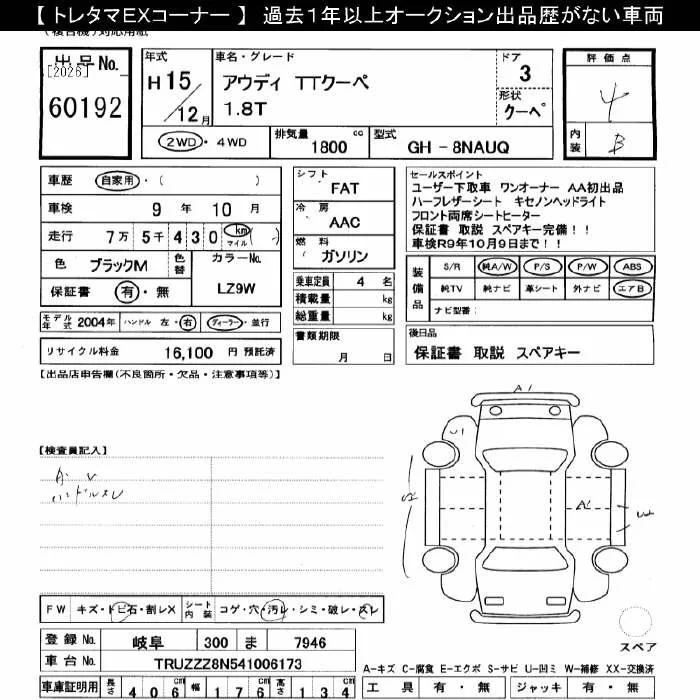 【 トレタマEXコーナー 】 過去1年以上オークション出品歴がない車両
(複合機)対応用紙
出品No.
[2026]
60192
年式
H 15
12月
車名・グレード
アウディ TTクーペ
1.8T
ドア
3
形状
クーペ
2WD・4WD
排気量
1800 cc
型式
GH - 8NAUQ
評価点
4
内装
B
車歴 自家用・( )
車検 9 年 10 月
走行 7万 5千 4 3 0 km マイル ( )
色 ブラックM
色替
カラーNo.
LZ9W
保証書 有・無
モデル年式 2004年 ハンドル 左・右 ディーラー・並行
リサイクル料金 16,100 円 預託済
シフト
FAT
冷房
AAC
燃料
ガソリン
乗車定員 4 名
積載量 kg
総重量 kg
書類期限
月 日
セールスポイント
ユーザー下取車 ワンオーナー AA初出品
ハーフレザーシート キセノンヘッドライト
フロント両席シートヒーター
保証書 取説 スペアキー完備!!
車検R9年10月9日まで!!
装備品
S/R 純A/W P/S P/W ABS
純TV 純ナビ 革シート 外ナビ エアB
ナビ型番:
後日品
保証書 取説 スペアキー
【出品店申告欄(不良箇所・欠品・注意事項等)】
【検査員記入】
ハンドルスレ
A1
U1
A2
FW キズ・トビ石・割レX
シート内装 コゲ・穴・汚レ・シミ・破レ・スレ
登録No. 岐阜 300 ま 7946
車台No. TRUZZZ8N541006173
車庫証明用 長さ 406 cm 幅 176 cm 高さ 134 cm
スペア
A-キズ C-腐食 E-エクボ S-サビ U-凹ミ W-補修 XX-交換済
工具 有・無 ジャッキ 有・無